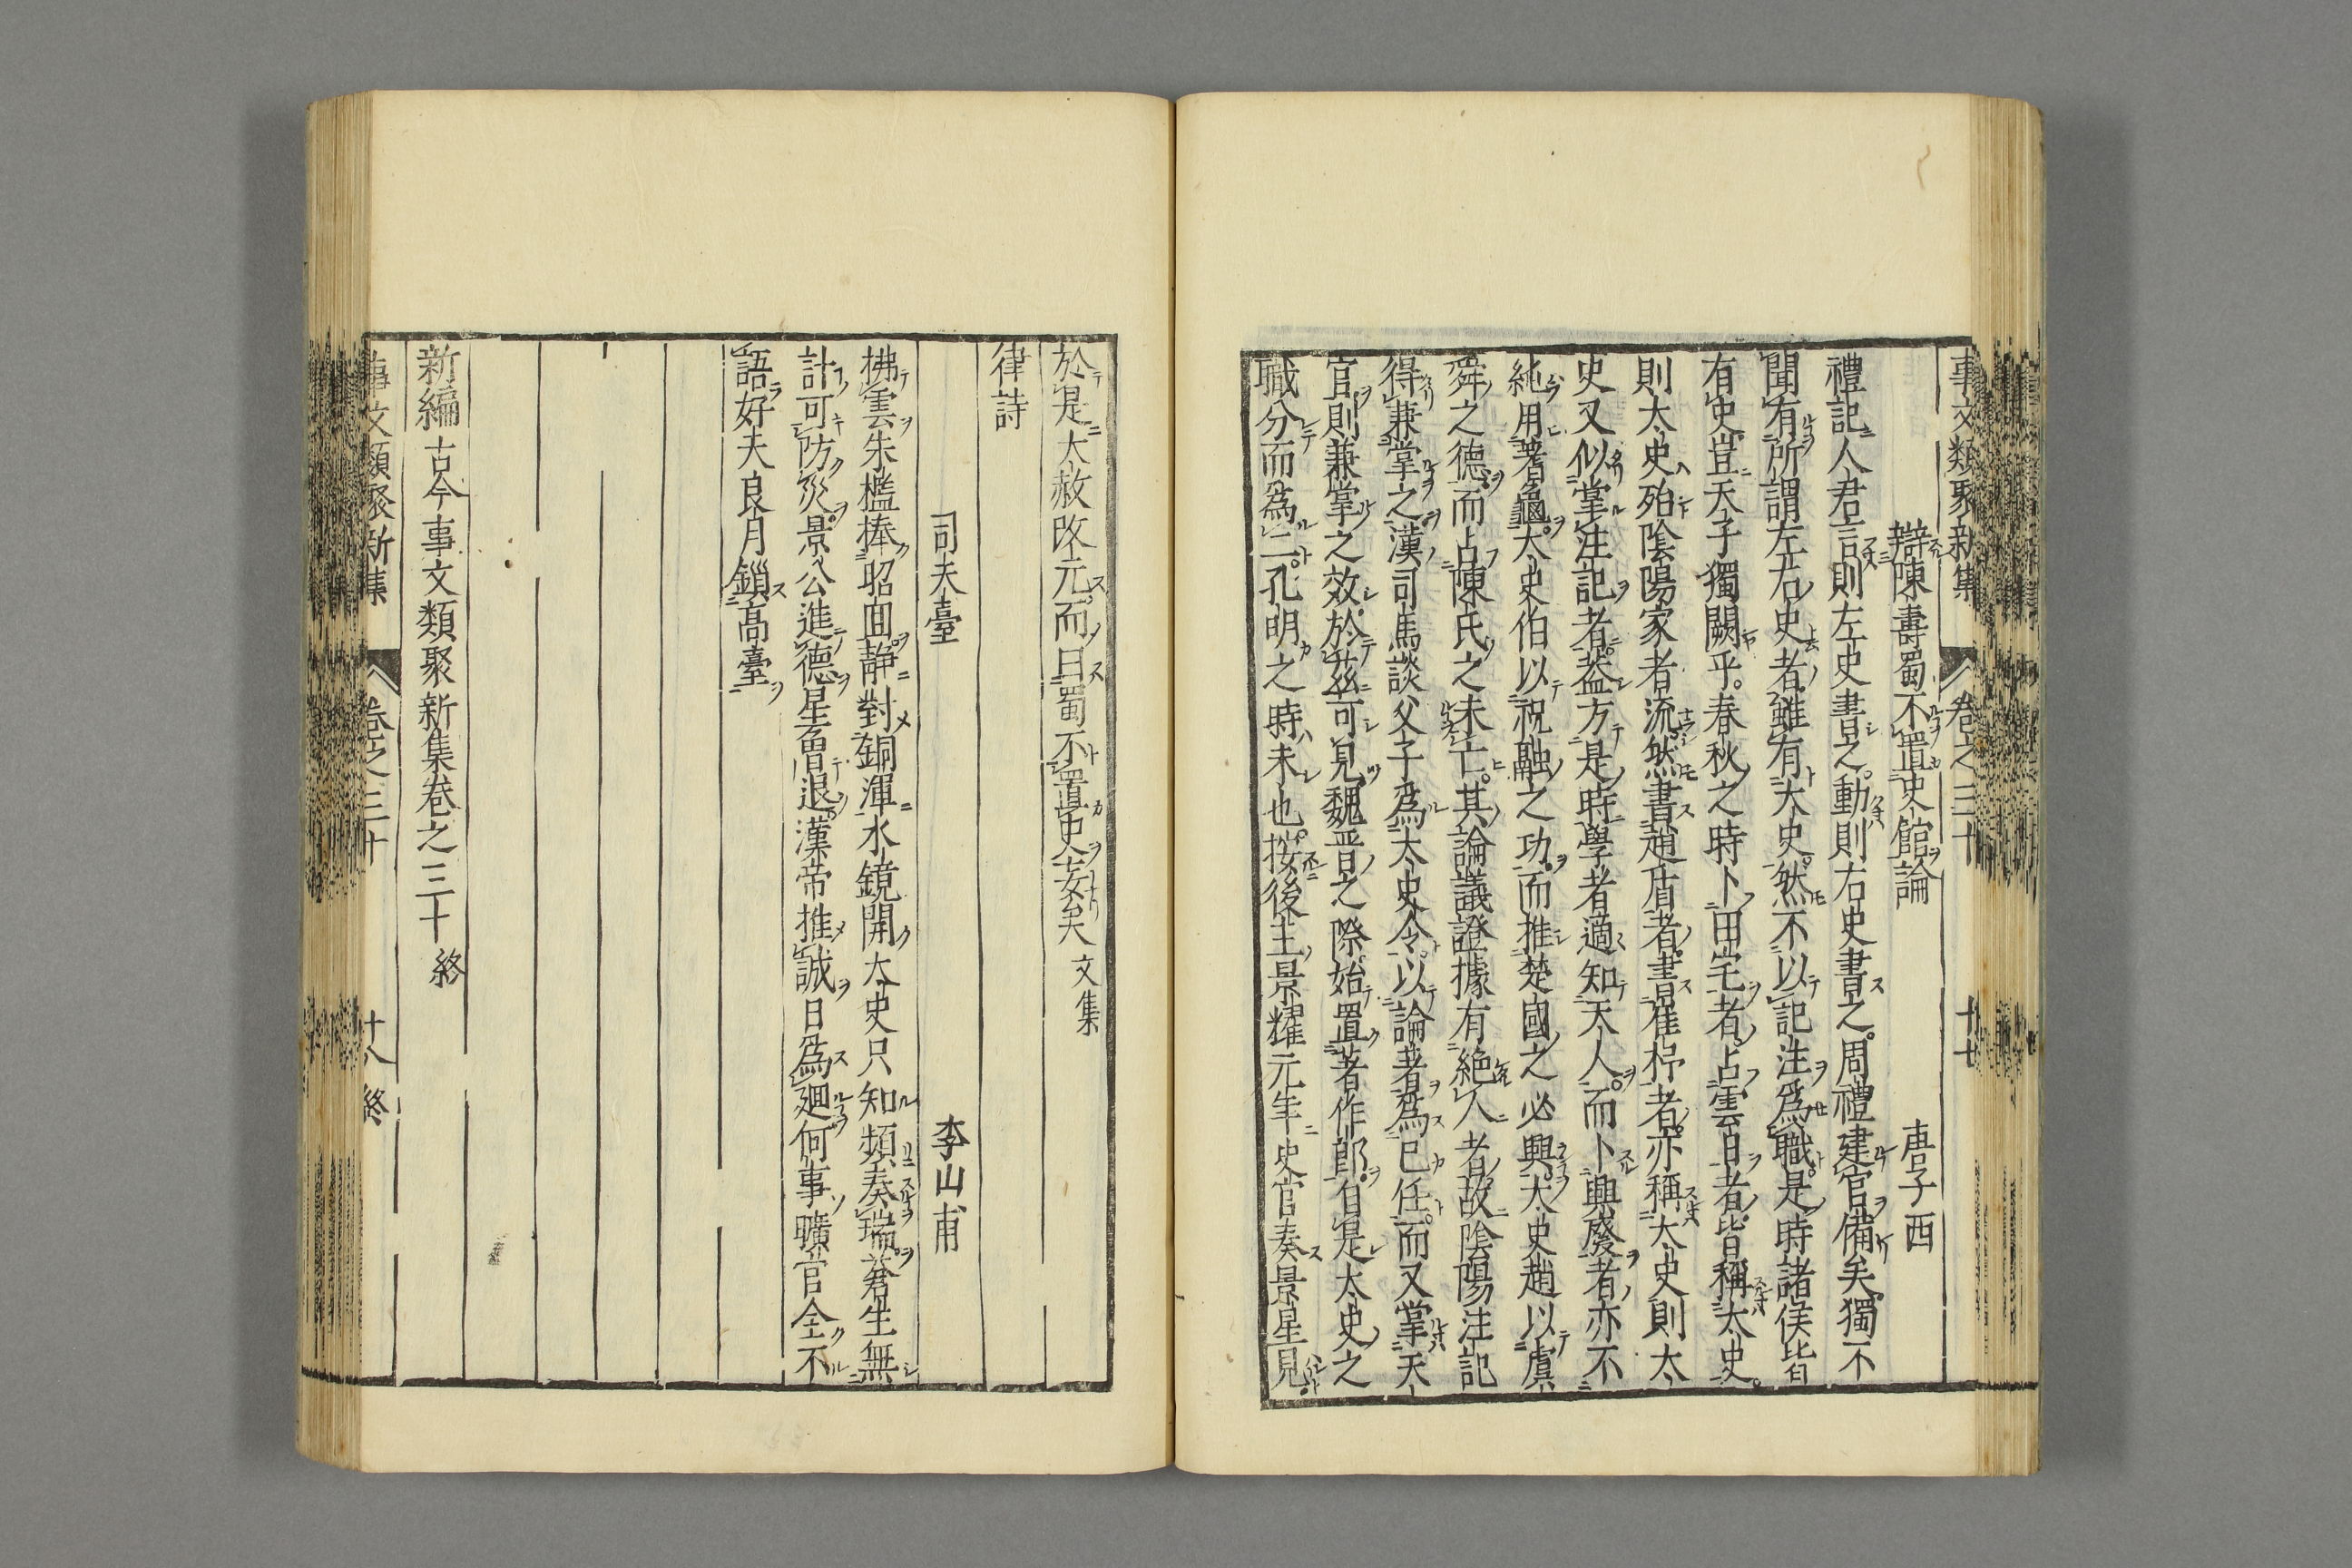 事文類聚新集 卷之三十 十七
辯陳壽蜀不置史館論 唐子西
禮記人君言則左史書之。動則右史書之。周禮建官備矣獨不
聞有所謂左右史者雖有大史。然不以記注爲職是時諸侯皆
有史豈天子獨闕乎。春秋之時卜田宅者占雲日者皆稱太史。
則太史殆陰陽家者流然書趙盾者書崔杼者亦稱大史則太
史又似掌注記者蓋方是時學者適知天人。而卜興廢者亦不
純用蓍龜。大史伯以祝融之功。而推楚國之必興。太史趙以虞
舜之德而占陳氏之未亡。其論議證據有絶人者故陰陽注記
得兼掌之漢司馬談父子爲太史令以論著爲己任。而又掌天
官則兼掌之效於茲可見魏晋之際始置著作郎自是太史之
職分而爲二。孔明之時未也。按後主景耀元年史官奏景星見
於是大赦改元而曰蜀不置史妄矣 文集
律詩
司天臺 李山甫
拂雲朱檻捧昭回静對銅渾水鏡開太史只知頻奏瑞蒼生無
計可防災景公進德星曽退漢帝推誠日爲廻何事曠官全不
語好天良月鎖高臺
新編古今事文類聚新集卷之三十終
事文類聚新集 卷之三十 十八終